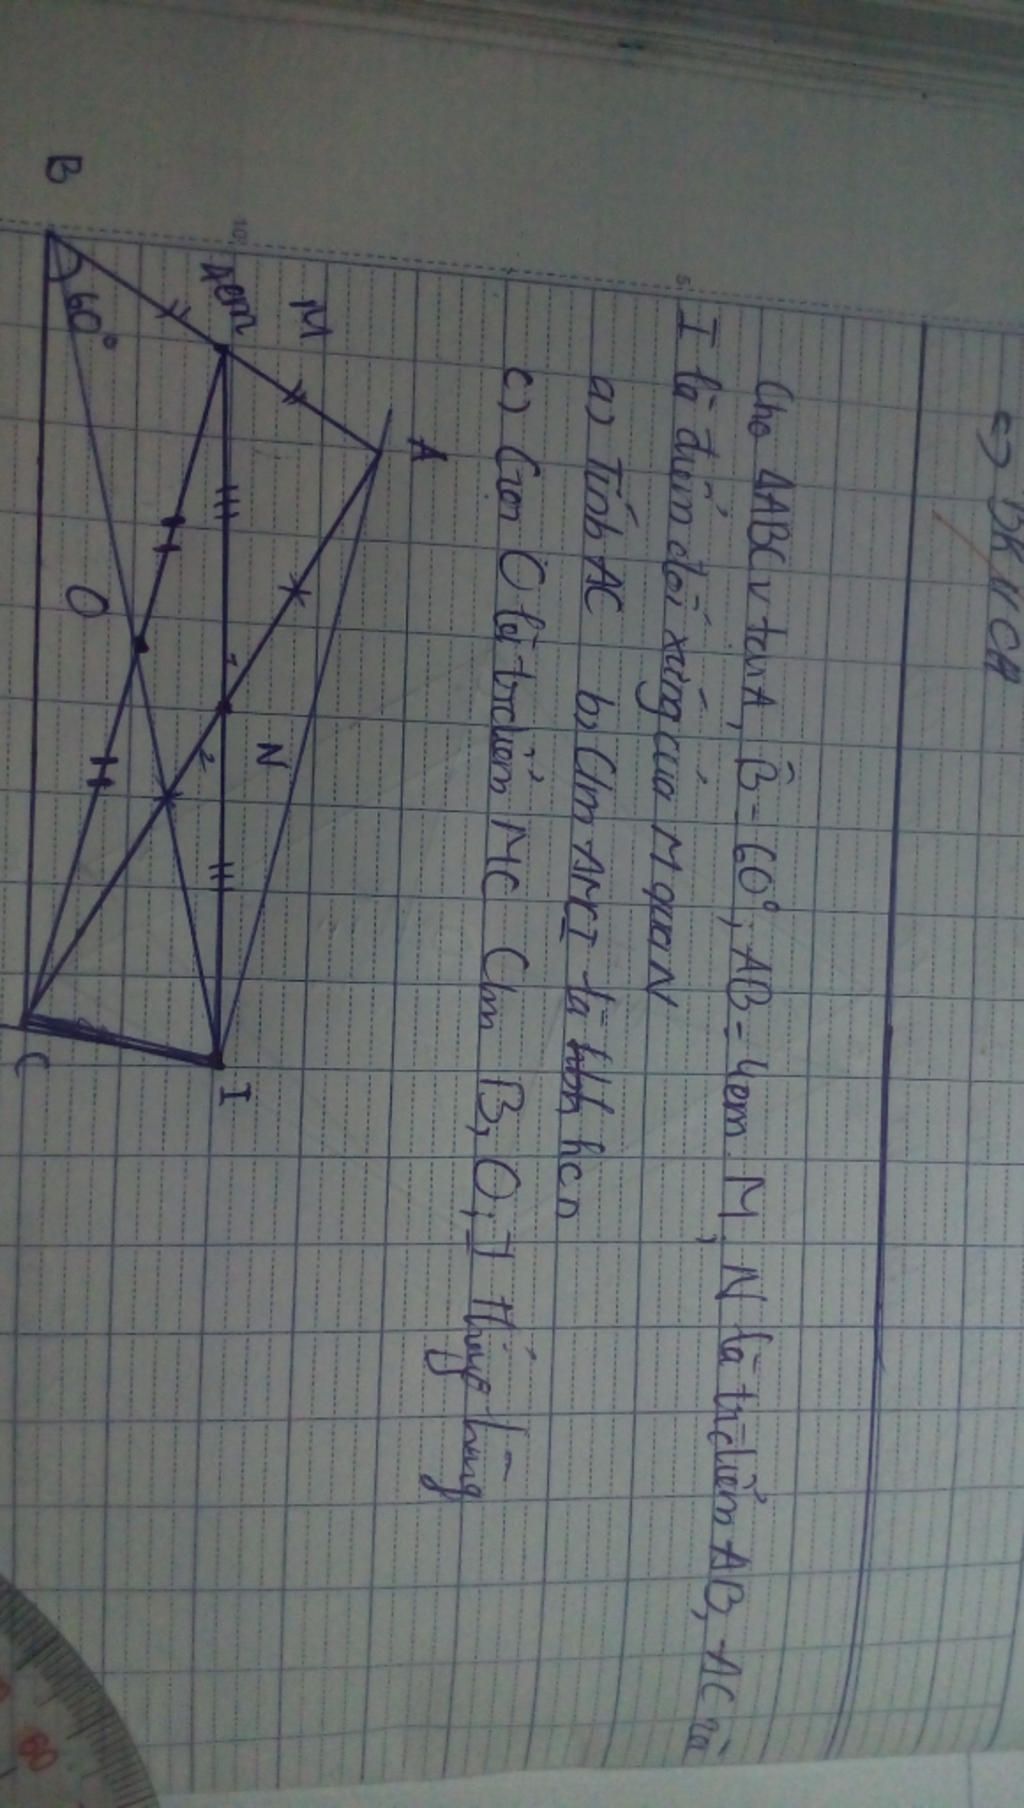 => BK // CA
Cho ΔABC v tại A, B̂ = 60°, AB = 4cm. M, N là trđiểm AB, AC và
I là điểm đối xứng của M qua N
a) Tính AC b) Cm AMCI là hbh, hcn
c) Gọi O là trđiểm MC Cm B, O, I thẳng hàng
A
M
4cm
N
1
2
60°
O
B
C
I
10
5
60